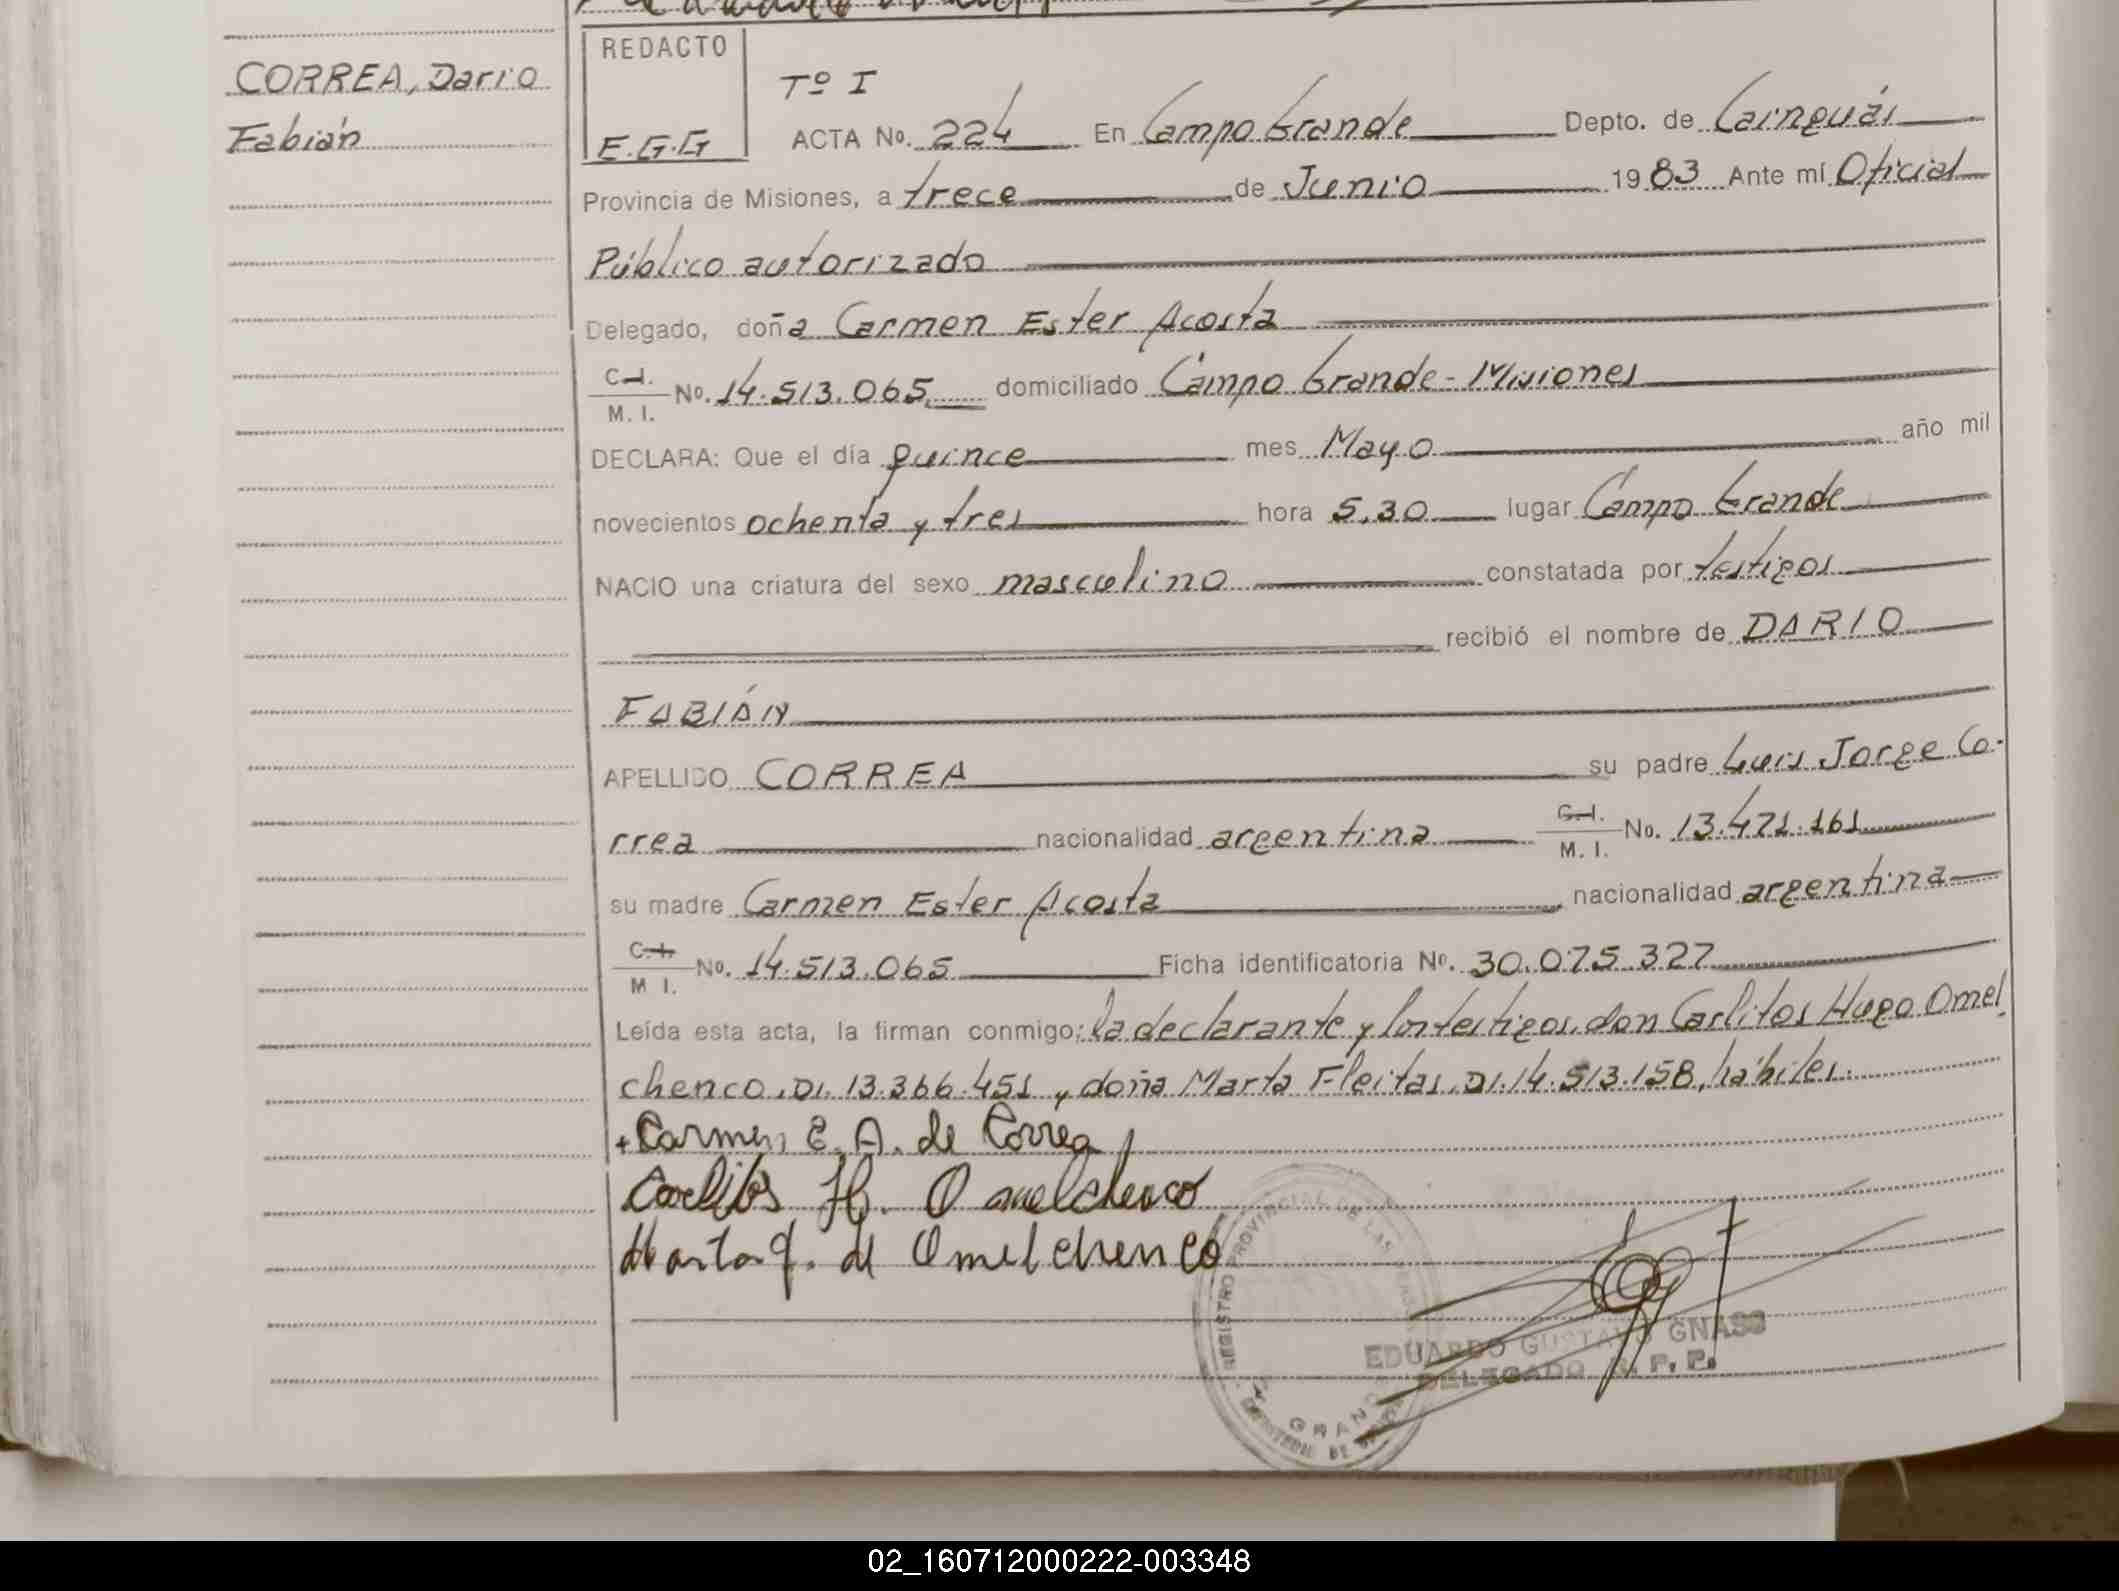 CORREA, Dario
Fabián
REDACTO
E.G.G
Tº I
ACTA No. 224 En Campo Grande Depto. de Cainguás
Provincia de Misiones, a trece de Junio 1983 Ante mí Oficial
Público autorizado
Delegado, doña Carmen Ester Acosta
C.I.
M. I. No. 14.513.065 domiciliado Campo Grande - Misiones
DECLARA: Que el día quince mes Mayo año mil
novecientos ochenta y tres hora 5,30 lugar Campo Grande
NACIO una criatura del sexo masculino constatada por testigos
recibió el nombre de DARIO
FABIÁN
APELLIDO CORREA su padre Luis Jorge Co-
rrea nacionalidad argentina C.I.
M. I. No. 13.471.161
su madre Carmen Ester Acosta nacionalidad argentina
C.I.
M I. No. 14.513.065 Ficha identificatoria No. 30.075.327
Leída esta acta, la firman conmigo: la declarante y los testigos, don Carlitos Hugo Omel
chenco, DI. 13.366.451 y doña Marta Fleitas, DI. 14.513.158, hábiles.
+Carmen E. A. de Correa
Carlitos H. Omelchenco
Marta F. de Omelchenco
REGISTRO PROVINCIAL DE LAS
GRANDE
EDUARDO GUSTAVO GNASS
DELEGADO R. P. P.
02_160712000222-003348